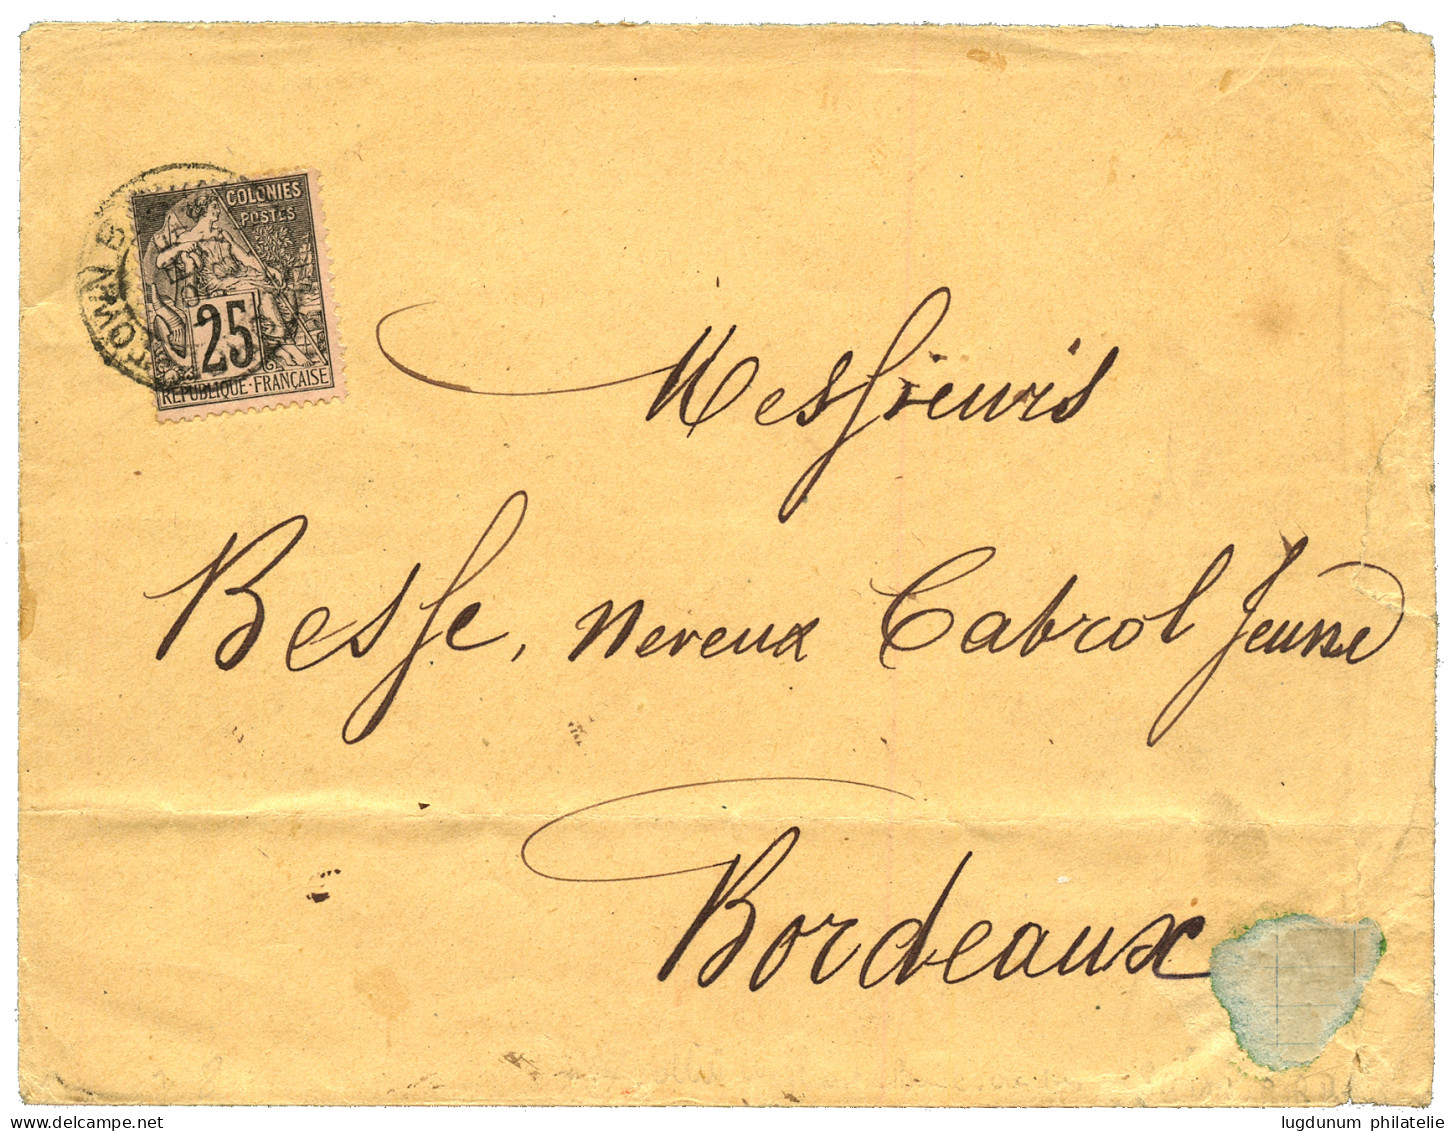 COLONIES
POSTES
25
REPUBLIQUE·FRANÇAISE
Messieurs
Besse, neveux Cabrol Jeune
Bordeaux
lugdunum philatelie